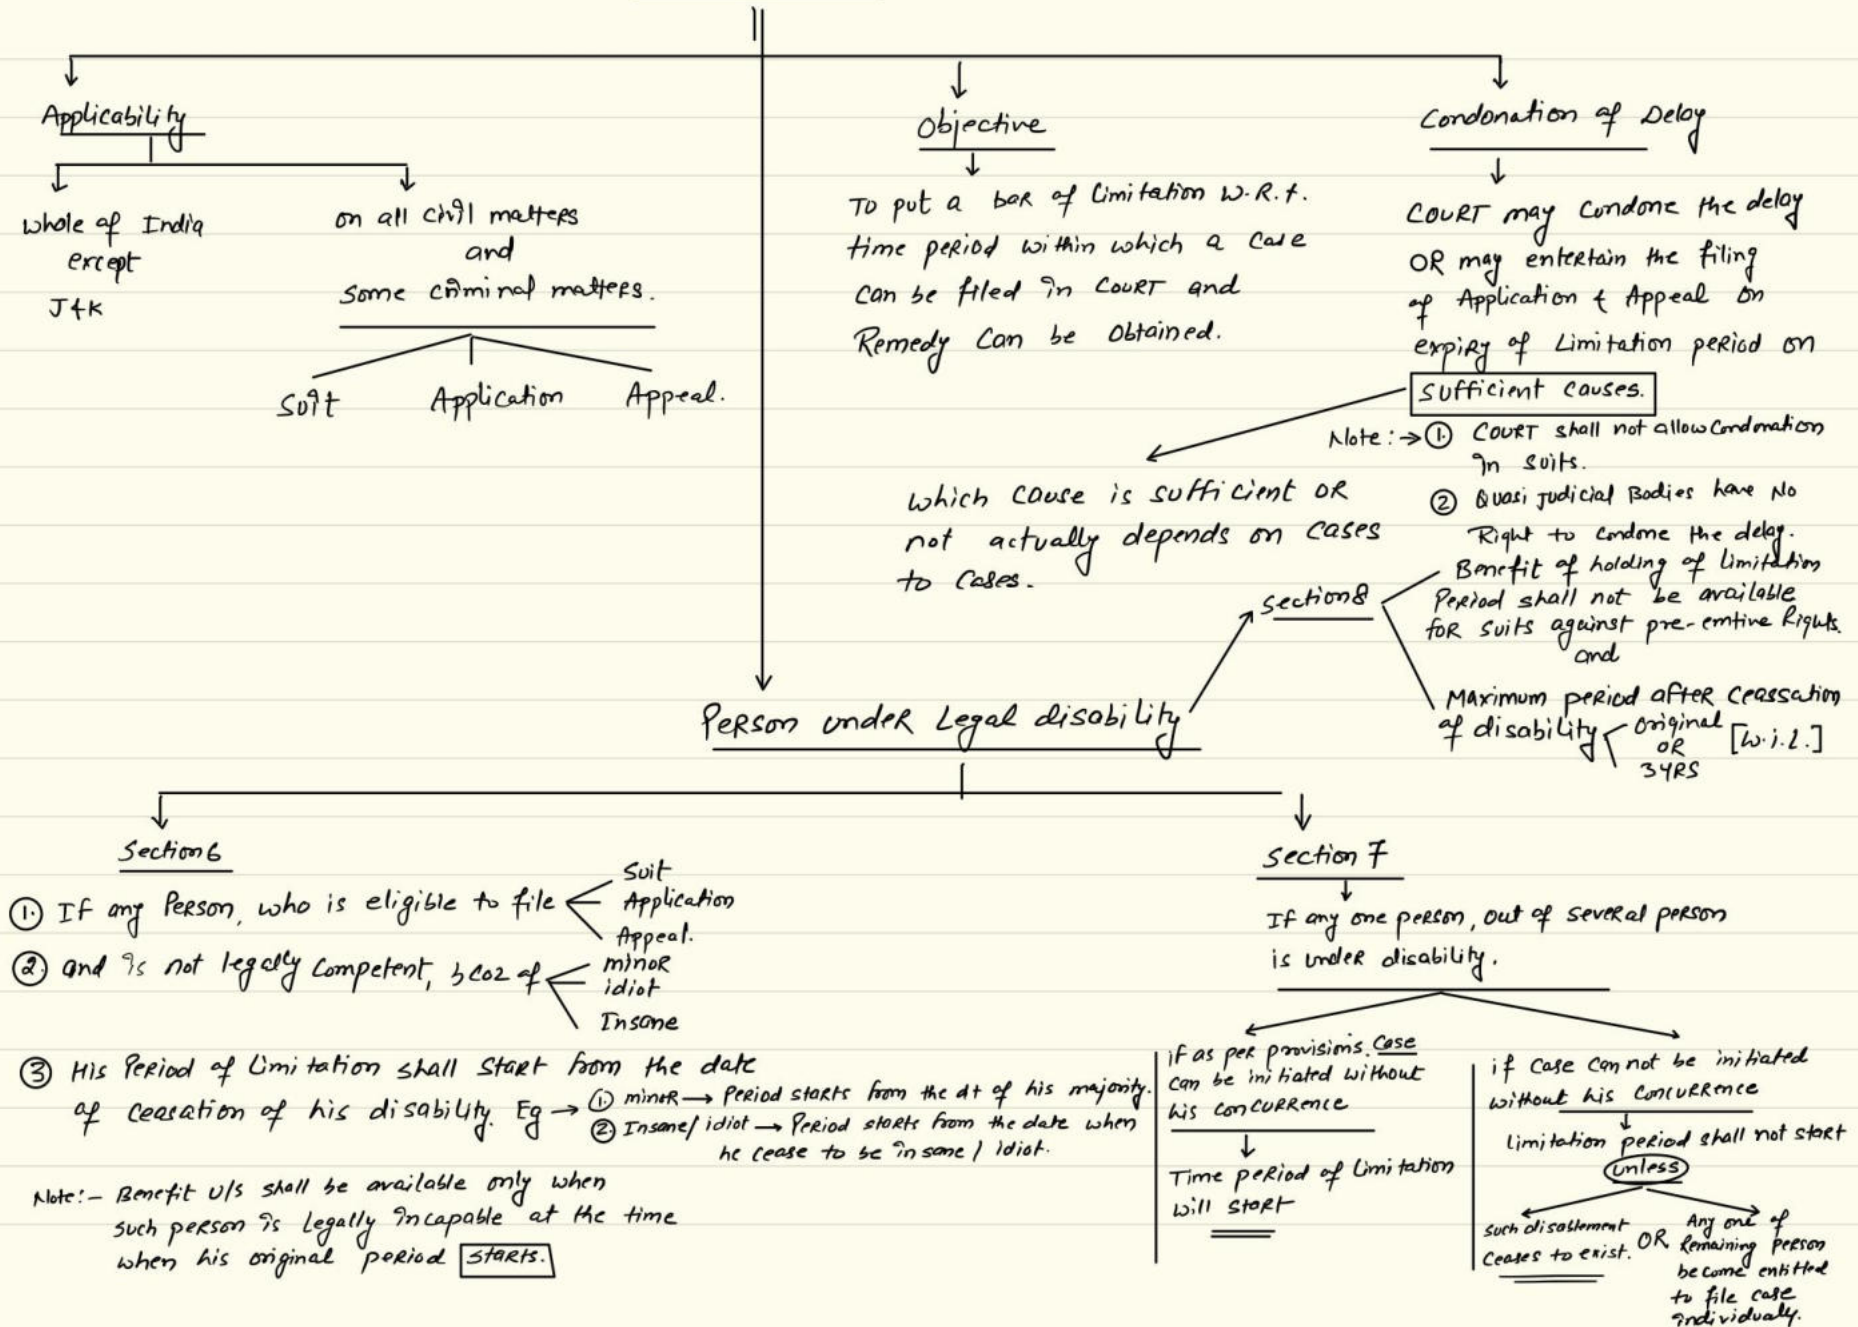 Applicability
whole of India
except
J&K
on all civil matters
and
some criminal matters.
Suit
Application
Appeal.
Objective
To put a bar of Limitation W.R.t.
time period within which a case
can be filed in court and
Remedy can be obtained.
Condonation of Delay
Court may condone the delay
OR may entertain the filing
of Application & Appeal on
expiry of Limitation period on
sufficient causes.
Note:→ ① Court shall not allow condonation
in suits.
② Quasi judicial Bodies have No
Right to condone the delay.
which cause is sufficient OR
not actually depends on cases
to cases.
Section 8
Benefit of holding of limitation
period shall not be available
for suits against pre-emtive Rights.
and
Maximum period after ceassation
of disability
original
OR
3 YRS
[w.i.l.]
Person under Legal disability
Section 6
① If any Person, who is eligible to file
Suit
Application
Appeal.
② and is not legally competent, bcoz of
minor
idiot
Insane
③ His Period of Limitation shall start from the date
of ceasation of his disability. Eg → ① minor → Period starts from the dt of his majority.
② Insane/idiot → Period starts from the date when
he cease to be insane / idiot.
Note:- Benefit u/s shall be available only when
such person is legally incapable at the time
when his original period starts.
Section 7
If any one person, out of several person
is under disability.
if as per provisions, case
can be initiated without
his concurrence
Time period of Limitation
will start
if case can not be initiated
without his concurrence
limitation period shall not start
unless
such disablement
ceases to exist.
OR
Any one of
Remaining person
become entitled
to file case
individualy.